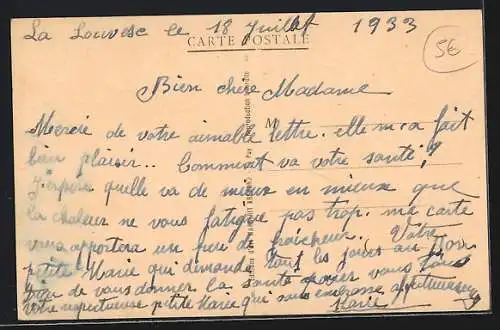 La Louvesc le 18 Juillet 1933
CARTE POSTALE
5€
Bien chère Madame
M
Mercie de votre aimable lettre. elle m'a fait
bien plaisir.. Comment va votre santé!?
J'espère quelle va de mieux en mieux que
la chaleur ne vous fatigue pas trop. ma carte
vous apportera un peu de fraicheur. Votre
petite Marie qui demande tout les jours au Bon
de vous donner la santé vous
votre respectueuse petite Marie qui vous embrasse affectueusement
Marie